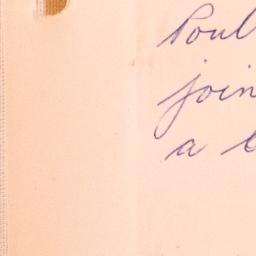 Poul
join
a